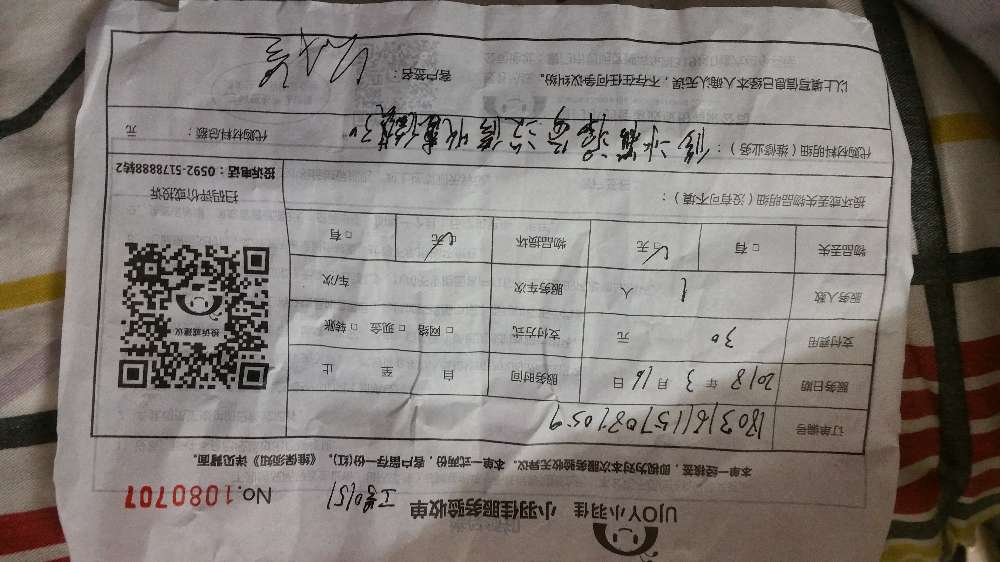 UJOY小羽佳 小羽佳服务验收单
No.1080707
本单一经签接,即视为对本次服务验收无异议。本单一式两份,客户留存一份(红)。《维保须知》详见背面。
订单编号 180316115708059
服务日期 2018年3月16日 服务时间 自 至 止
支付费用 30元 支付方式 □网络 □现金 □转账
服务人数 1人 服务车次 车/次
物品丢失 □有 ☑无 物品损坏 ☑无 □有
损坏或丢失物品明细(没有可不填):
代购材料明细(维修业务): 代购材料总额: 元
以上填写信息已经本人确认无误,不存在任何争议纠纷。 客户签名:
投诉或建议
扫码评价或投诉
投诉电话:0592-5178888转2